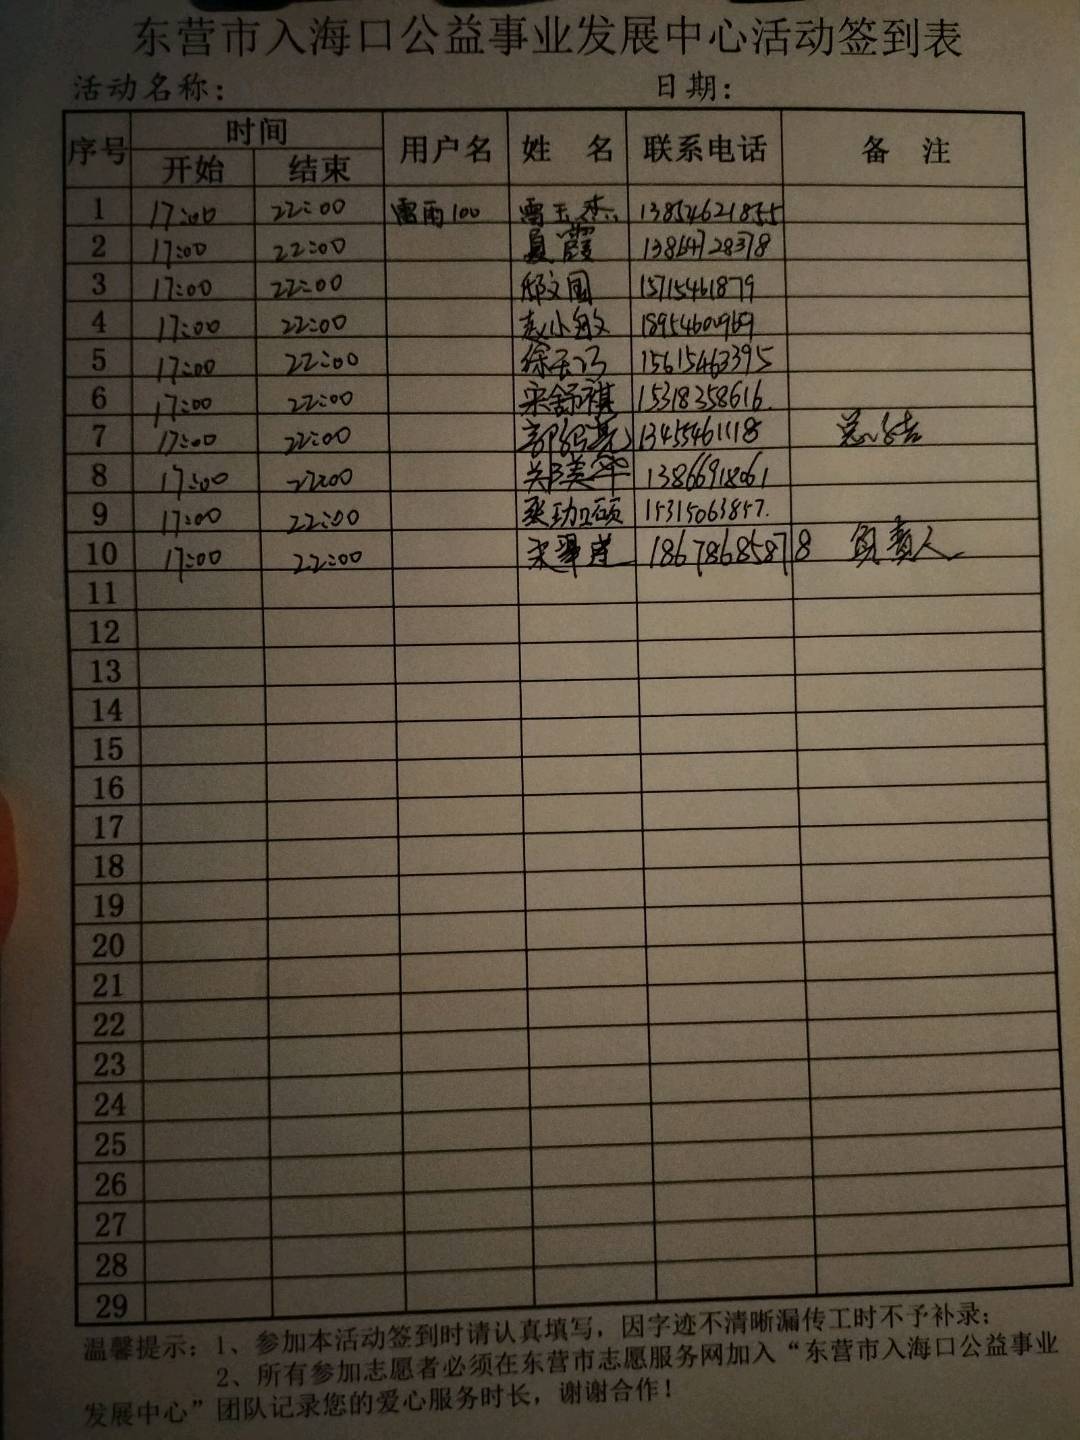 东营市入海口公益事业发展中心活动签到表
活动名称： 日期：
序号 时间 用户名 姓 名 联系电话 备 注
开始 结束
1 17:00 22:00 雷雨100 雷玉杰 13854621855
2 17:00 22:00 夏霞 13864728378
3 17:00 22:00 邸文国 15715461879
4 17:00 22:00 赵小敏 18954600969
5 17:00 22:00 15615463395
6 17:00 22:00 宋舒祺 15318358616.
7 17:00 22:00 13455461118 总结
8 17:00 22:00 郑美华 13866918061
9 17:00 22:00 15315063857.
10 17:00 22:00 18678685878 负责人
11
12
13
14
15
16
17
18
19
20
21
22
23
24
25
26
27
28
29
温馨提示：1、参加本活动签到时请认真填写，因字迹不清晰漏传工时不予补录；
2、所有参加志愿者必须在东营市志愿服务网加入“东营市入海口公益事业
发展中心”团队记录您的爱心服务时长，谢谢合作！